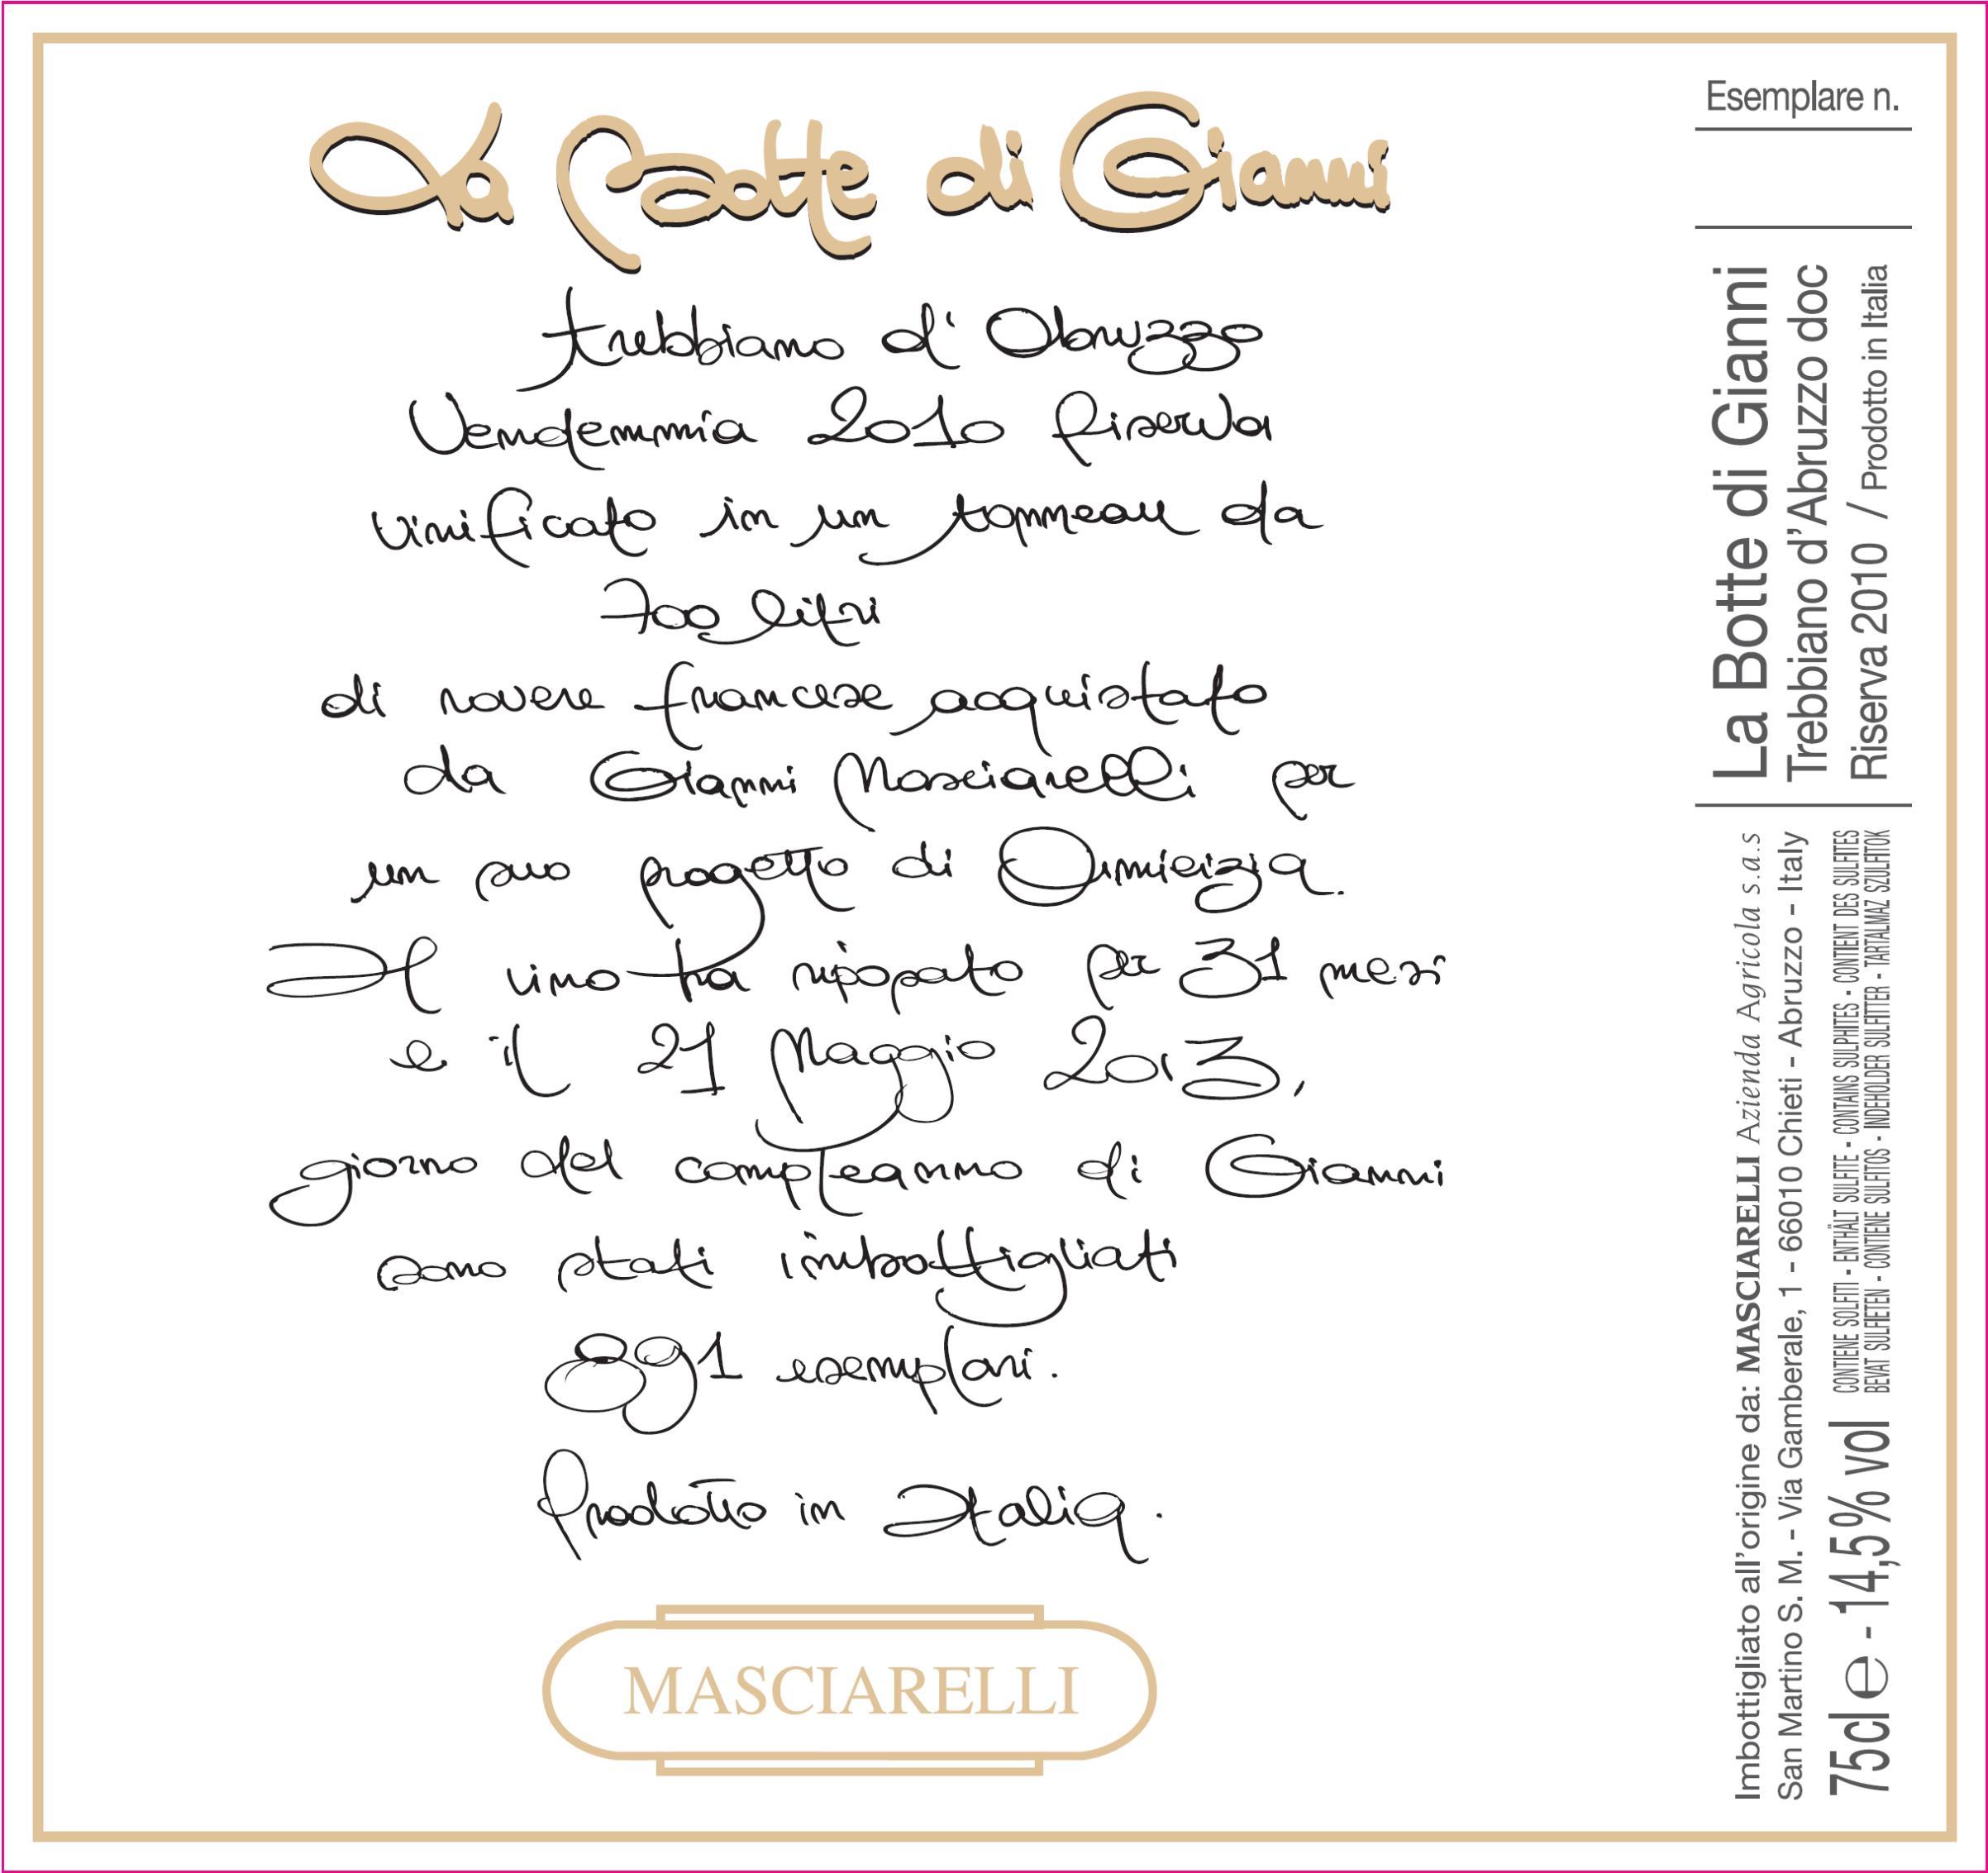 La Botte di Gianni
trebbiano d'Abruzzo
Vendemmia 2010 Riserva
vinificato in un tonneau da
700 litri
di rovere francese acquistato
da Gianni Masciarelli per
un suo progetto di Amicizia.
Il vino ha riposato per 31 mesi
e il 21 Maggio 2013,
giorno del compleanno di Gianni
sono stati imbottigliati
891 esemplari.
Prodotto in Italia.
MASCIARELLI
Esemplare n.
La Botte di Gianni
Trebbiano d'Abruzzo doc
Riserva 2010 / Prodotto in Italia
Imbottigliato all'origine da: MASCIARELLI Azienda Agricola s.a.s
San Martino S. M. - Via Gamberale, 1 - 66010 Chieti - Abruzzo - Italy
75cl e - 14,5% vol
CONTIENE SOLFITI - ENTHÄLT SULFITE - CONTAINS SULPHITES - CONTIENT DES SULFITES
BEVAT SULFIETEN - CONTIENE SULFITOS - INDEHOLDER SULFITTER - TARTALMAZ SZULFITOK